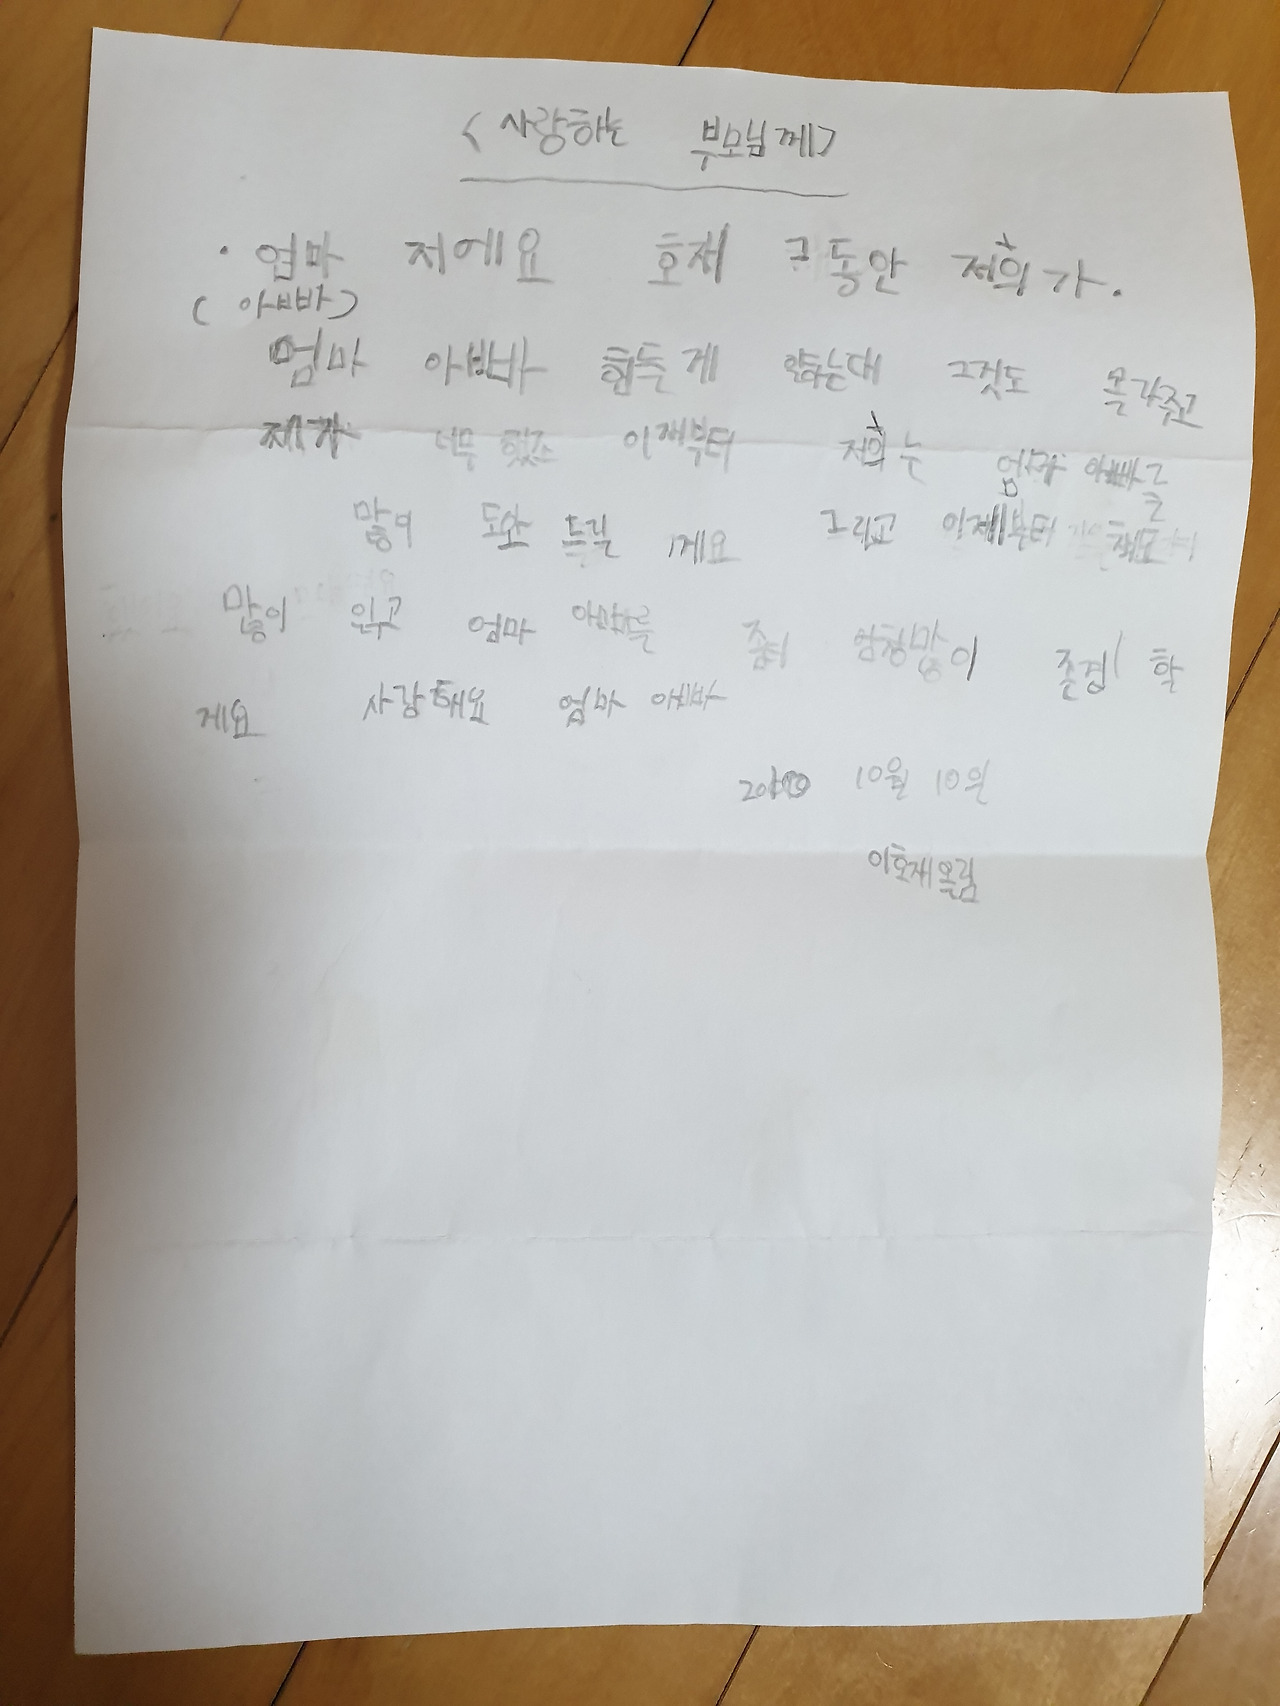 <사랑하는 부모님께>
· 엄마 저에요 호재 그동안 저희가.
(아빠)
엄마 아빠 힘든게 않는대 그것도 몰라주고
제가 너무 했죠 이재부터 저희는 엄마 아빠를
많이 도와 드릴 게요 그리고 이제부터 책도
많이 읽고 엄마 아빠를 좀더 엄청많이 존경 할
게요 사랑해요 엄마 아빠
10월 10일
이호재올림